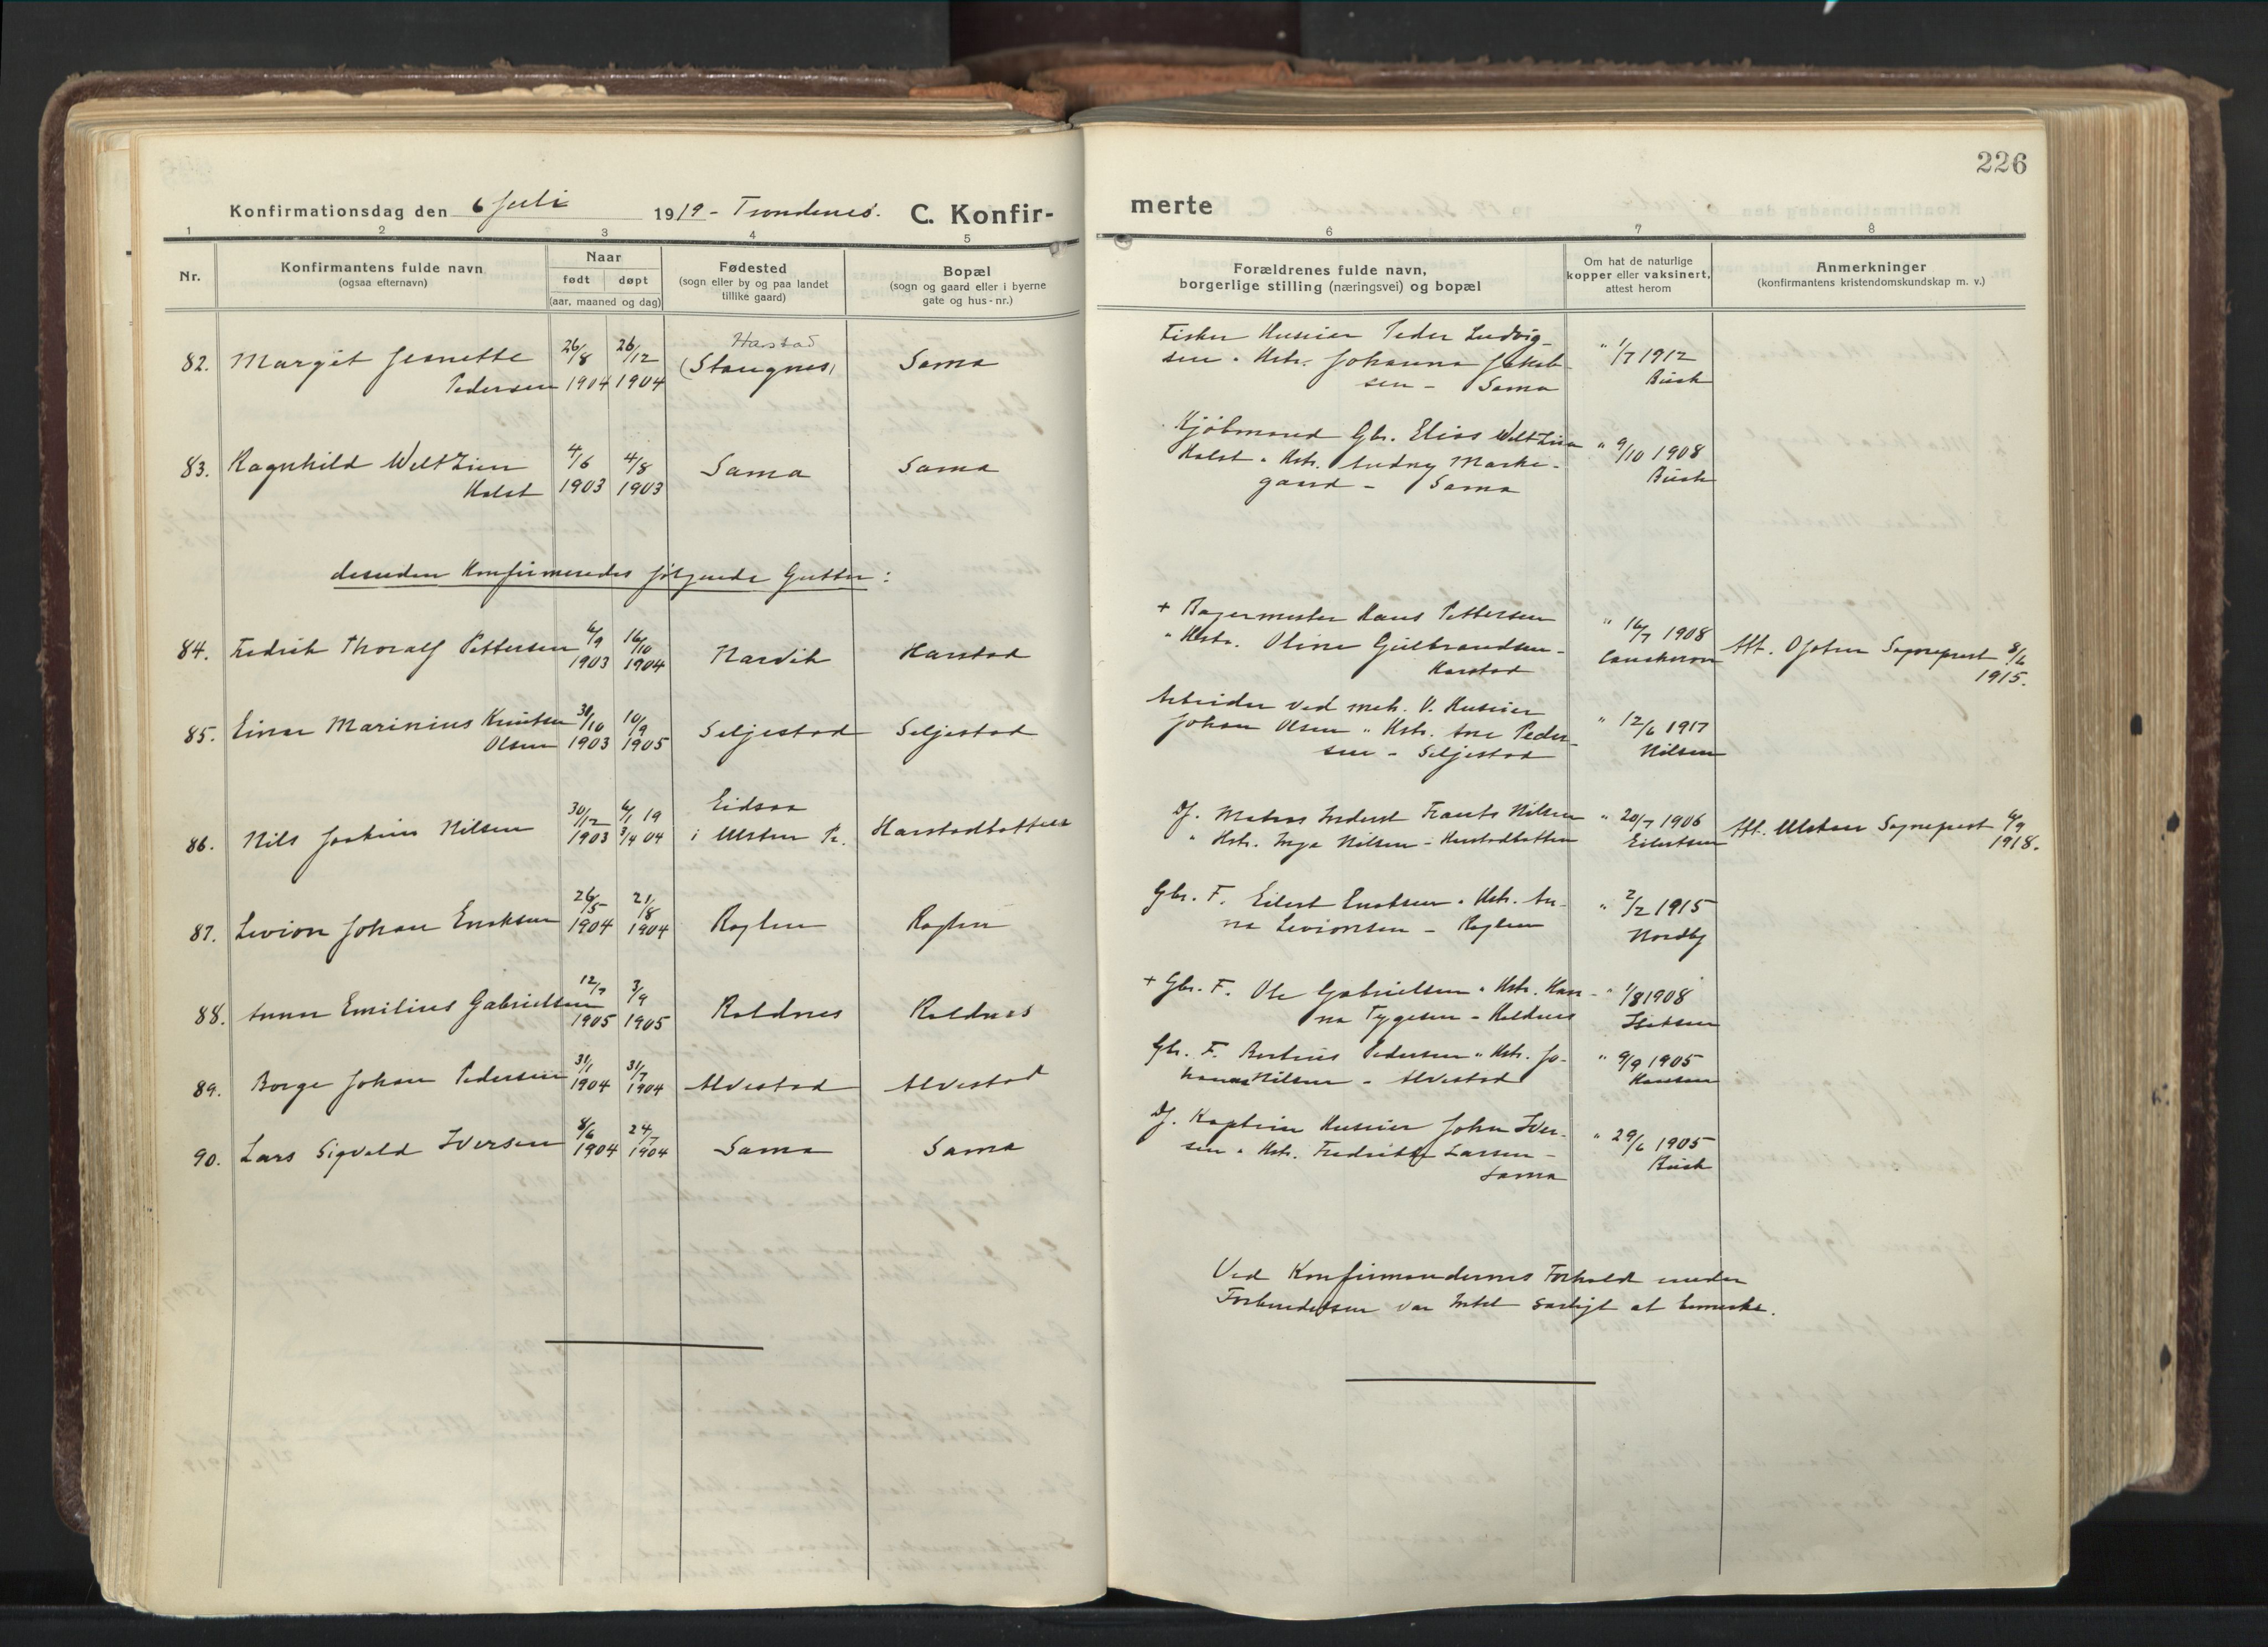 226
Konfirmationsdag den 6 Juli 1919 - Trondenes. C. Konfir-
merte
1 2 3 4 5 6 7 8
Nr.
Konfirmantens fulde navn
(ogsaa efternavn)
Naar
født døpt
(aar, maaned og dag)
Fødested
(sogn eller by og paa landet
tillike gaard)
Bopæl
(sogn og gaard eller i byerne
gate og hus-nr.)
Forældrenes fulde navn,
borgerlige stilling (næringsvei) og bopæl
Om hat de naturlige
kopper eller vaksinert,
attest herom
Anmerkninger
(konfirmantens kristendomskundskap m. v.)
82. Margit Jeanette
Pedersen
26/8 1904
26/12 1904
Harstad
(Stangnes)
Sama
Fisker Huseier Peder Ludvig-
sen " Hstr. Johanna Jakob-
sen - Sama
" 1/7 1912
Busch
83. Ragnhild Weltzien
Holst
4/6 1903
4/8 1903
Sama
Sama
Kjøbmand Gbr. Elias Weltzien
Holst " Hstr. Audny Marke-
gaard - Sama
" 9/10 1908
Busch
desuden konfirmeredes følgende Gutter:
84. Fredrik Thoralf Pettersen
6/9 1903
16/10 1904
Narvik
Harstad
+ Bagermester Hans Pettersen
" Hstr. Oline Gulbrandsen -
Harstad
" 16/7 1908
Att. Sogneprest 8/6
1915.
85. Einar Marinius Knutsen
Olsen
31/10 1903
10/9 1905
Seljestad
Seljestad
Arbeider ved mek. V. Huseier
Johan Olsen " Hstr. Ane Peder-
sen - Seljestad
" 12/6 1917
Nilsen
86. Nils Joakim Nilsen
30/12 1903
6/1 19
3/4 04
Eidsaa
i Ulsten Pr.
Harstadbotten
Df. Matros Inderst Frants Nilsen
" Hstr. Inga Nilsen - Harstadbotten
" 20/7 1906
Eilertsen
Att. Ulsten Sogneprest 6/9
1918.
87. Levion Johan Enoksen
26/5 1904
21/8 1904
Røglen
Røglen
Gbr. F. Eilert Enoksen " Hstr. An-
na Levionsen - Røglen
" 2/2 1915
Nordby
88. Gunnar Emilius Gabrielsen
12/7 1905
3/9 1905
Koldnes
Koldnes
+ Gbr. F. Ole Gabrielsen " Hstr. Han-
na Tygesen - Koldnes
" 1/8 1908
Isaksen
89. Borge Johan Pedersen
31/1 1904
31/7 1904
Alvestad
Alvestad
Gbr. F. Bertinus Pedersen " Hstr. Jo-
hanna Nilsen - Alvestad
" 9/9 1905
Hansen
90. Lars Sigvald Iversen
8/6 1904
24/7 1904
Sama
Sama
Df. Kaptein Huseier John Iver-
sen " Hstr. Fredrikke Larsen -
Sama
" 29/6 1905
Busch
Ved Konfirmandernes Forhold under
Forberedelsen var Intet særligt at bemerke.